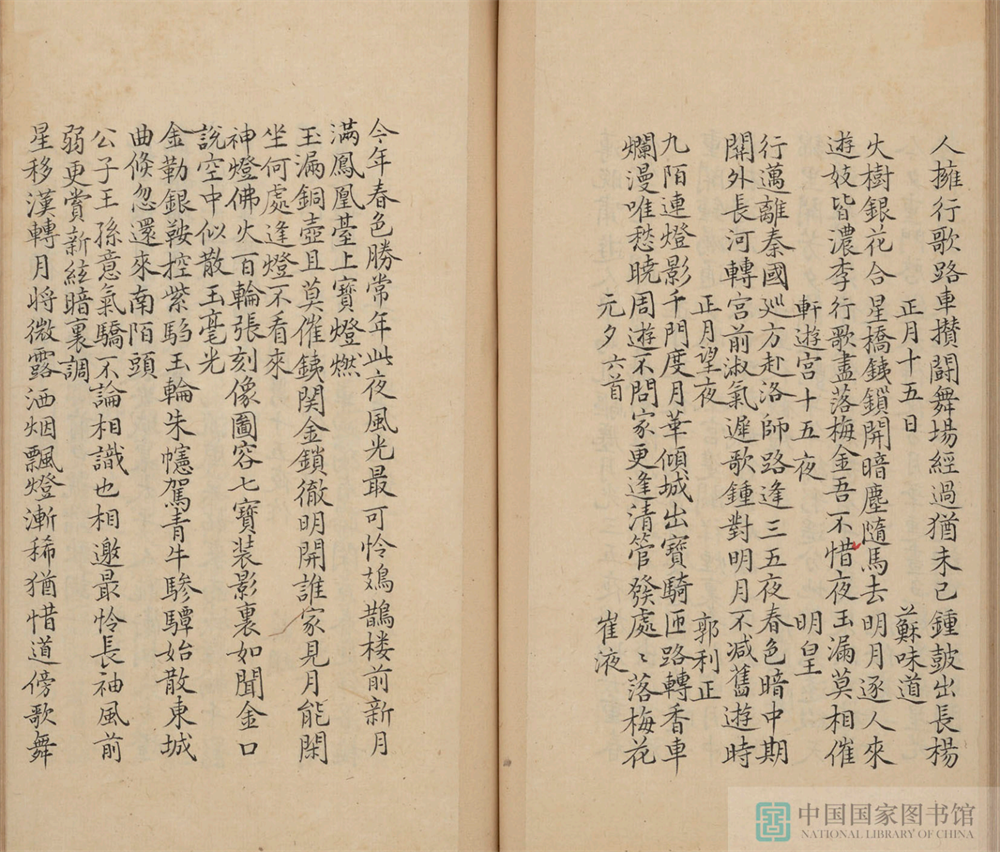 人擁行歌路車攢鬪舞場經過猶未已鍾鼓出長楊
正月十五日 蘇味道
火樹銀花合星橋鉄鎖開暗塵隨馬去明月逐人來
遊妓皆濃李行歌盡落梅金吾不惜夜玉漏莫相催
軒遊宮十五夜 明皇
行邁離秦國廵方赴洛師路逢三五夜春色暗中期
関外長河轉宮前淑氣遲歌鍾對明月不減舊遊時
正月望夜 郭利正
九陌連燈影千門度月華傾城出寶騎匝路轉香車
爛漫唯愁曉周遊不問家更逢清管發處〻落梅花
元夕六首 崔液
今年春色勝常年此夜風光最可怜鳷鵲楼前新月
滿鳳凰臺上寶燈燃
玉漏銅壺且莫催鉄関金鎖徹明開誰家見月能閑
坐何處逢燈不看來
神燈佛火百輪張刻像圖容七寶装影裏如聞金口
說空中似散玉毫光
金勒銀鞍控紫騧玉輪朱幰駕青牛驂驔始散東城
曲倏忽還來南陌頭
公子王孫意氣驕不論相識也相邀最怜長袖風前
弱更賞新絃暗裏調
星移漢轉月将微露洒烟飄燈漸稀猶惜道傍歌舞
中国国家图书馆
NATIONAL LIBRARY OF CHINA